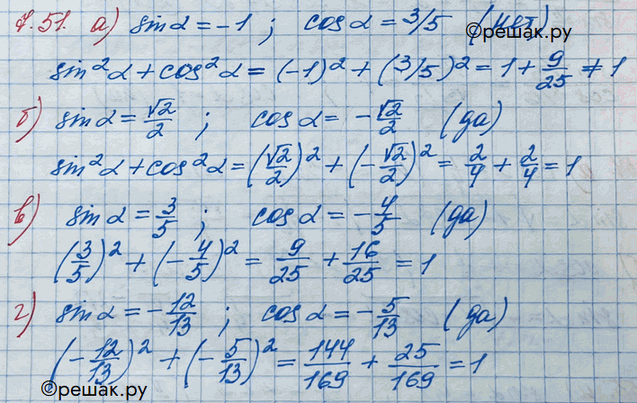 7.51. а) sin α = -1 ; cos α = 3/5 (нет)
©решак.ру
sin²α + cos²α = (-1)² + (3/5)² = 1 + 9/25 ≠ 1
б) sin α = √2/2 ; cos α = -√2/2 (да)
sin²α + cos²α = (√2/2)² + (-√2/2)² = 2/4 + 2/4 = 1
в) sin α = 3/5 ; cos α = -4/5 (да)
(3/5)² + (-4/5)² = 9/25 + 16/25 = 1
г) sin α = -12/13 ; cos α = -5/13 (да)
(-12/13)² + (-5/13)² = 144/169 + 25/169 = 1
©решак.ру